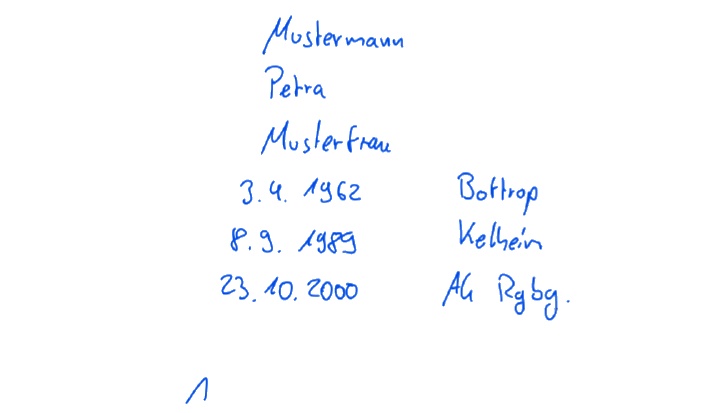 Mustermann
Petra
Musterfrau
3.4. 1962 Bottrop
8.9. 1989 Kelheim
23.10.2000 AG Rgbg.
1